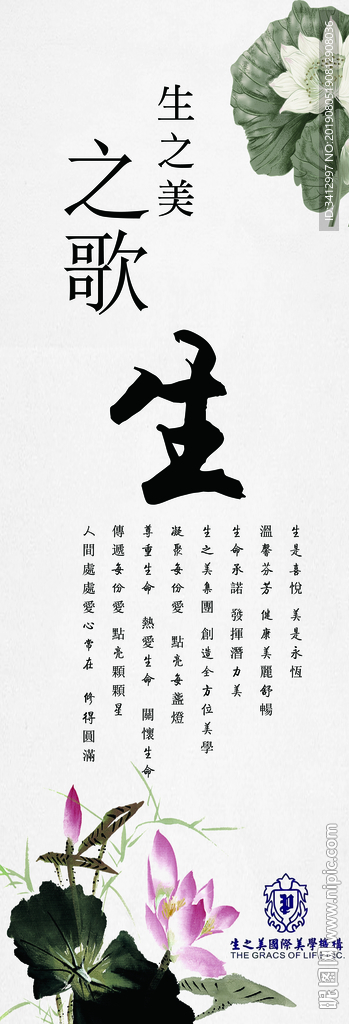 生之美
之歌
生
生是喜悅 美是永恆
溫馨芬芳 健康美麗舒暢
生命承諾 發揮潛力美
生之美集團 創造全方位美學
凝聚每份愛 點亮每盞燈
尊重生命 熱愛生命 關懷生命
傳遞每份愛 點亮顆顆星
人間處處愛心常在 修得圓滿
生之美國際美學機構
THE GRACS OF LIFE INC.
昵图网 www.nipic.com
ID:3412997 NO:20190805190812908036